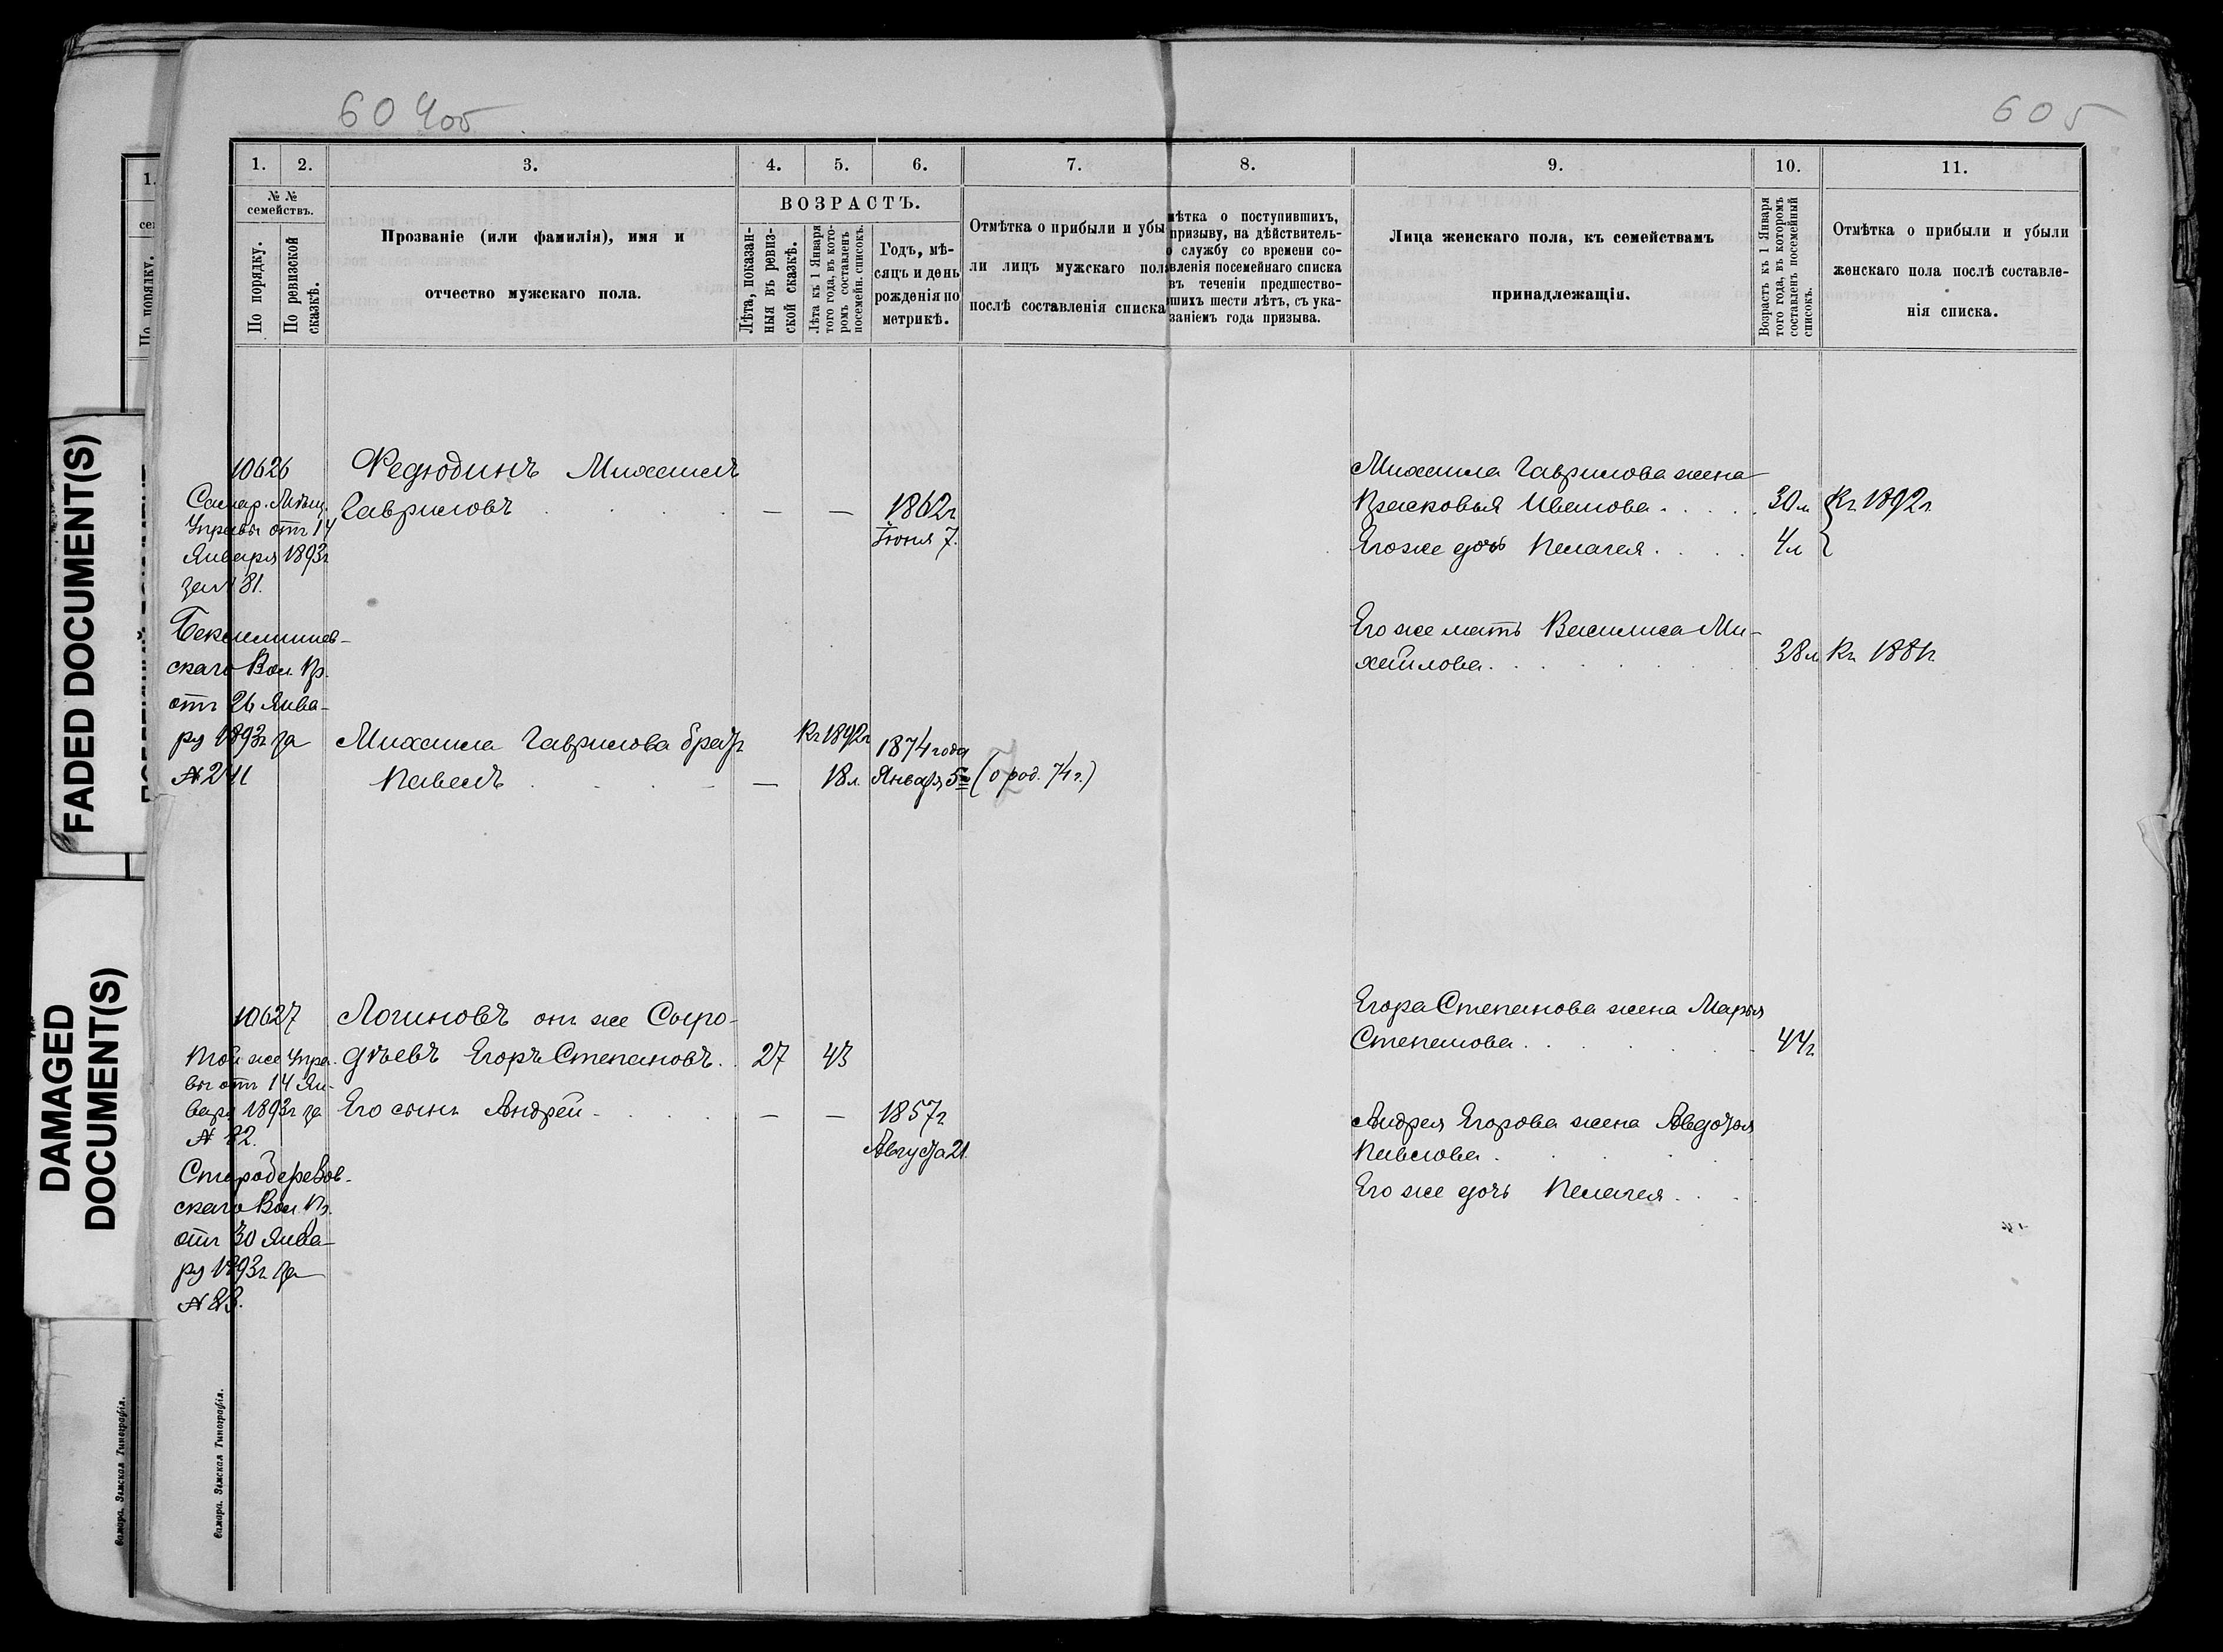 604об
605
1. 2. 3. 4. 5. 6. 7. 8. 9. 10. 11.
№ №
семействъ.
По порядку.
По ревизской
сказкѣ.
Прозваніе (или фамилія), имя и
отчество мужскаго пола.
ВОЗРАСТЪ.
Лѣта, показан-
ныя въ ревиз-
ской сказкѣ.
Лѣта къ 1 Января
того года, въ кото-
ромъ составленъ
посемейн. списокъ.
Годъ, мѣ-
сяцъ и день
рожденія по
метрикѣ.
Отмѣтка о прибыли и убы
ли лицъ мужскаго пола
послѣ составленія списка
мѣтка о поступившихъ,
призыву, на дѣйствитель-
о службу со времени со-
вленія посемейнаго списка
въ теченіи предшество-
шихъ шести лѣтъ, съ ука-
заніемъ года призыва.
Лица женскаго пола, къ семействамъ
принадлежащія.
Возрастъ къ 1 Января
того года, въ которомъ
составленъ посемейный
списокъ.
Отмѣтка о прибыли и убыли
женскаго пола послѣ составле-
нія списка.
10626
Самар. Мѣщ.
Управы отъ 14
Января 1893г
за № 81.
Бекшлишев-
скаго Вол. Пр.
отъ 26 Янва-
ря 1893г за
№ 241
Федюдинъ Михаилъ
Гавриловъ — — 1862г
Іюня 7.
Михаила Гаврилова братъ
Павелъ — Къ 1892г
18л. 1874 года
Января 5го (о род. 74г.)
Михаила Гаврилова жена
Прасковья Иванова 30л Къ 1892г
Его же дочь Пелагея 4л
Его же мать Василиса Ми-
хайлова 38л Къ 1881г
10627
Той же Упра-
вы отъ 14 Ян-
варя 1893г за
№ 82.
Стародеревов-
скаго Вол. Пр.
отъ 30 Янва-
ря 1893г за
№ 83.
Логиновъ онъ же Сыро-
дѣевъ Егоръ Степановъ 27 43
Его сынъ Андрей — — 1857г
Августа 21.
Егора Степанова жена Марья
Степанова 44г
Андрея Егорова жена Авдотья
Павлова
Его же дочь Пелагея
Самара. Земская Типографія.
Самара. Земская Типографія.
FADED DOCUMENT(S)
DAMAGED
DOCUMENT(S)